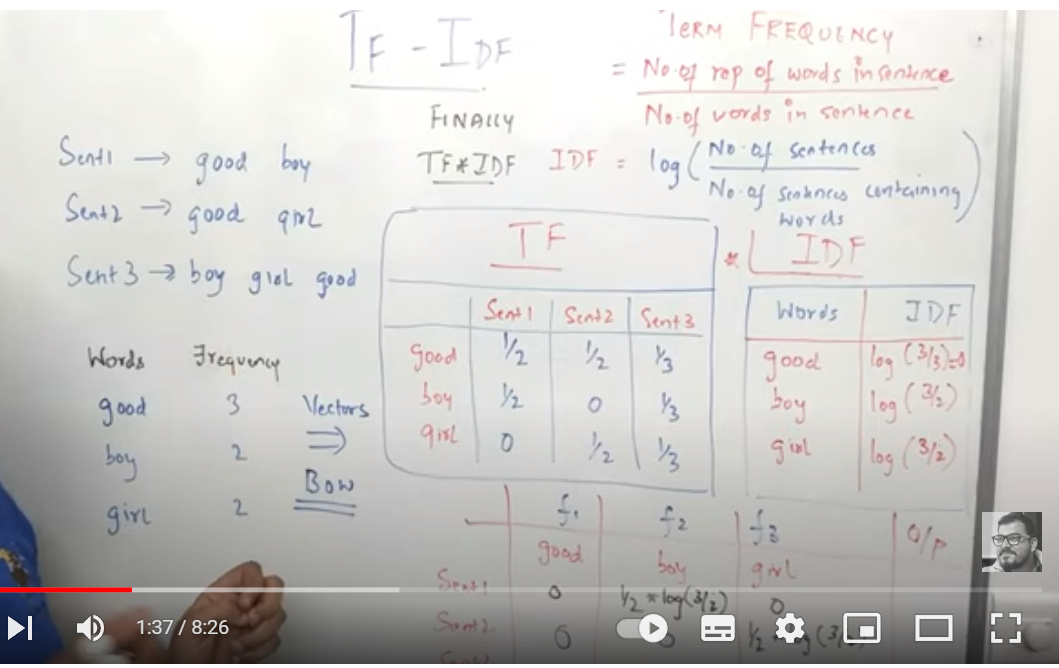 TF - IDF
TERM FREQUENCY
= No. of rep of words in sentence
No. of words in sentence
FINALLY
TF*IDF
IDF = log ( No. of sentences
No. of sentences containing
words )
Sent1 → good boy
Sent2 → good girl
Sent 3 → boy girl good
Words Frequency
good 3
boy 2
girl 2
Vectors
⇒
BOW
TF
Sent1 Sent2 Sent3
good 1/2 1/2 1/3
boy 1/2 0 1/3
girl 0 1/2 1/3
* IDF
Words IDF
good log (3/3)=0
boy log (3/2)
girl log (3/2)
f1 f2 f3 O/P
good boy girl
Sent1 0 1/2 * log(3/2) 0
Sent2 0 0 1/2 * log(3/2)
1:37 / 8:26